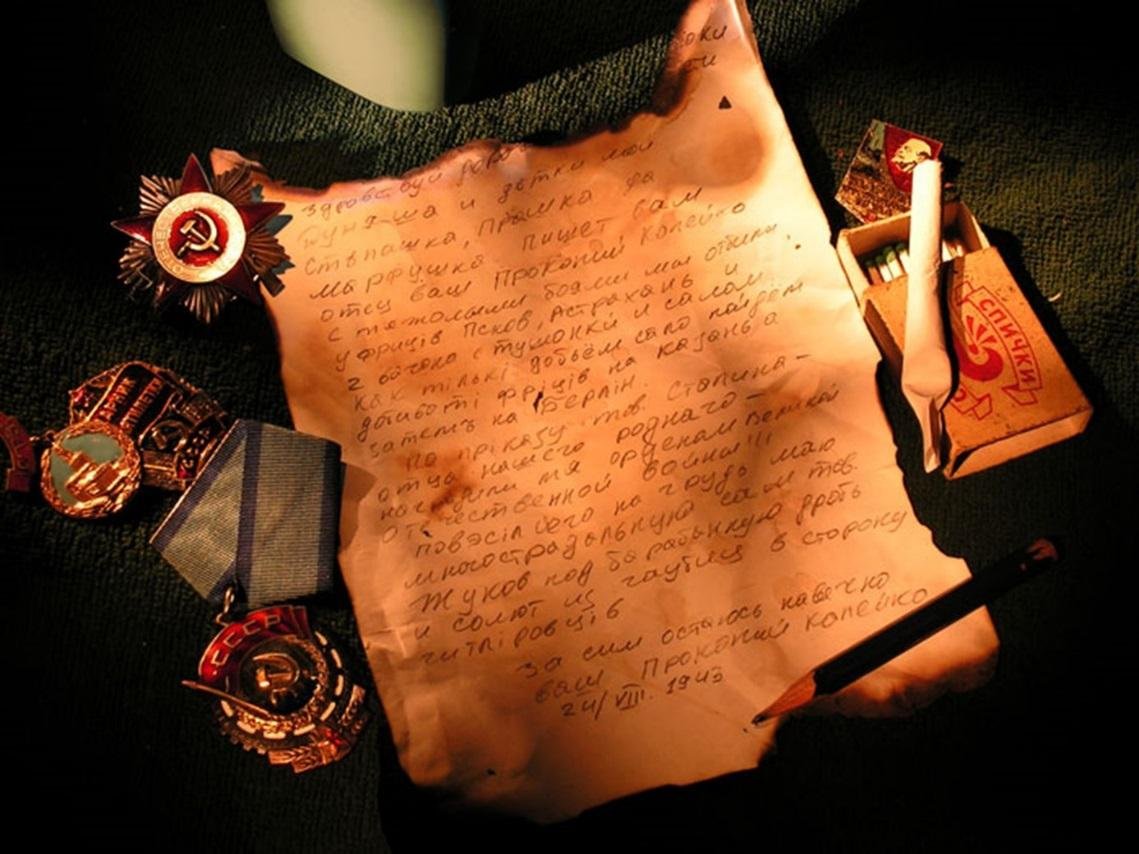 оки
ти
Здравствуй
Дуняша и детки мои
Степашка, Прошка да
Марфушка пишет вам
отец ваш Прокопий Копейко
с тяжолыми боями мы отбили
у фрицiв Псков, Астрахань и
2 бочки с тушонки и салом
как тiлькi добъём сало пойдём
фрiцiв на казань, а
затемъ на Берлiн.
По прiказу тов. Сталина-
отца нашего роднаго-
наградили мя орденам Великой
Отечественной войни!!!
повэсiл его на грудь маю
многострадальную сам тов.
Жуков под барабанную дробь
и солют из гаубиц в сторону
гитлiровцiв
За сим остаюсь навечно
ваш Прокопий Копейко
24/VIII. 1943
СССР
СПИЧКИ